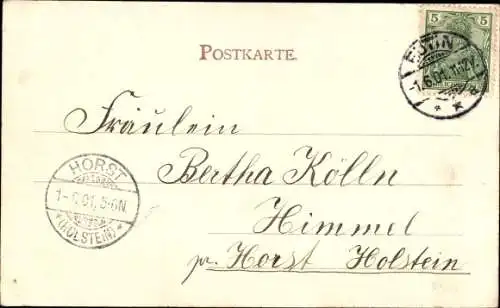 POSTKARTE.
5 5
EUTIN
1.6.01. 11-12V.
* * a
Fräulein
Bertha Kölln
HORST
1-6.01. 5-6N
*(HOLSTEIN)*
Himmel
pr. Horst Holstein